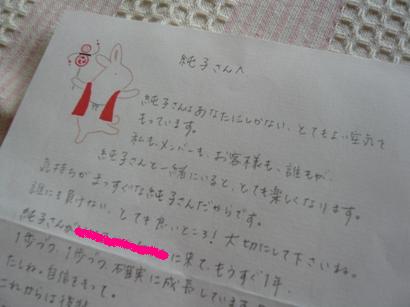 純子さんへ
純子さんはあなたにしかない、とてもよい空気を
もっています。
私も、メンバーも、お客様も、誰もが、
純子さんと一緒にいると、とても楽しくなります。
気持ちがまっすぐな純子さんだからです。
誰にも負けない、とても良いところ！大切にして下さいね。
純子さんが に来て、もうすぐ1年。
1歩づつ、1歩づつ、確実に成長している
たしね。自信をもって。
これからは後輩